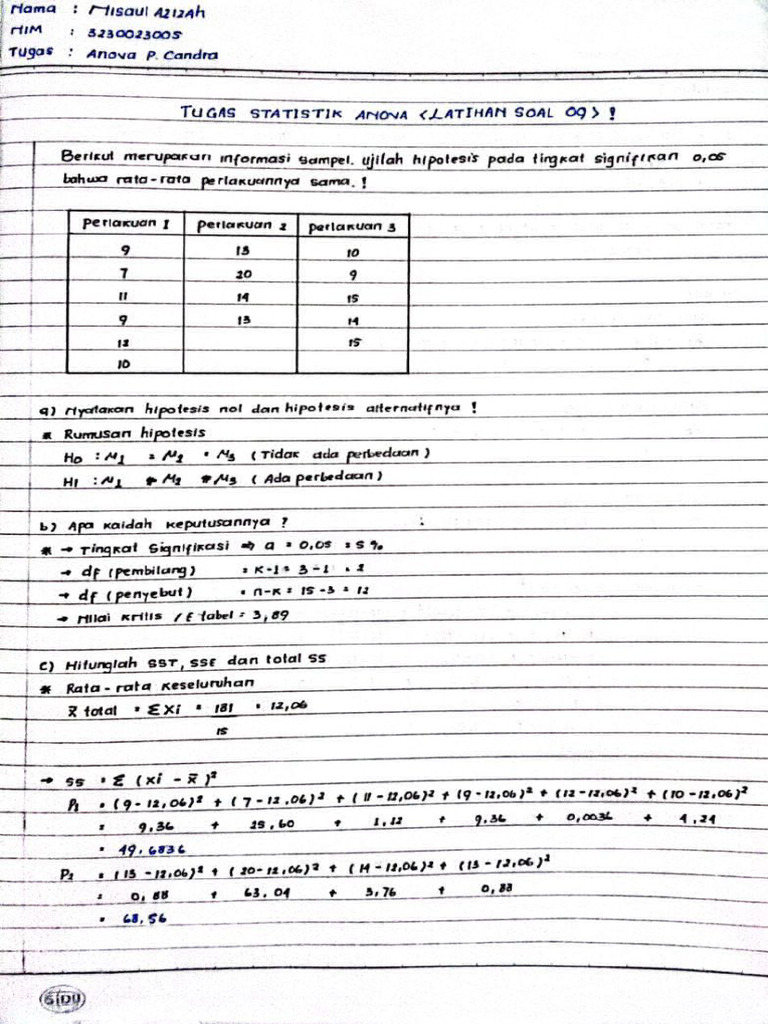 Nama : Misaul Azizah
NIM : 3230023005
Tugas : Anova P. Candra
TUGAS STATISTIK ANOVA <LATIHAN SOAL 09> !
Berikut merupakan informasi sampel. ujilah hipotesis pada tingkat signifikan 0,05
bahwa rata-rata perlakuannya sama. !
perlakuan 1 perlakuan 2 perlakuan 3
9 13 10
7 20 9
11 14 15
9 13 14
12 15
10
a) Nyatakan hipotesis nol dan hipotesis alternatifnya !
* Rumusan hipotesis
Ho : μ1 = μ2 = μ3 ( Tidak ada perbedaan )
H1 : μ1 ≠ μ2 ≠ μ3 ( Ada perbedaan )
b) Apa kaidah keputusannya ?
* → Tingkat Signifikasi ⇒ a = 0,05 = 5 %
→ df (pembilang) = K-1 = 3-1 = 2
→ df (penyebut) = n-K = 15-3 = 12
→ Nilai kritis / F tabel = 3,89
c) Hitunglah SST, SSE dan total SS
* Rata-rata keseluruhan
x̄ total = Σxi = 181 = 12,06
15
→ SS = Σ (xi - x̄)²
P1 = (9-12,06)² + (7-12,06)² + (11-12,06)² + (9-12,06)² + (12-12,06)² + (10-12,06)²
= 9,36 + 25,60 + 1,12 + 9,36 + 0,0036 + 4,24
= 49,6836
P2 = (13-12,06)² + (20-12,06)² + (14-12,06)² + (13-12,06)²
= 0,88 + 63,04 + 3,76 + 0,88
= 68,56
SIDU